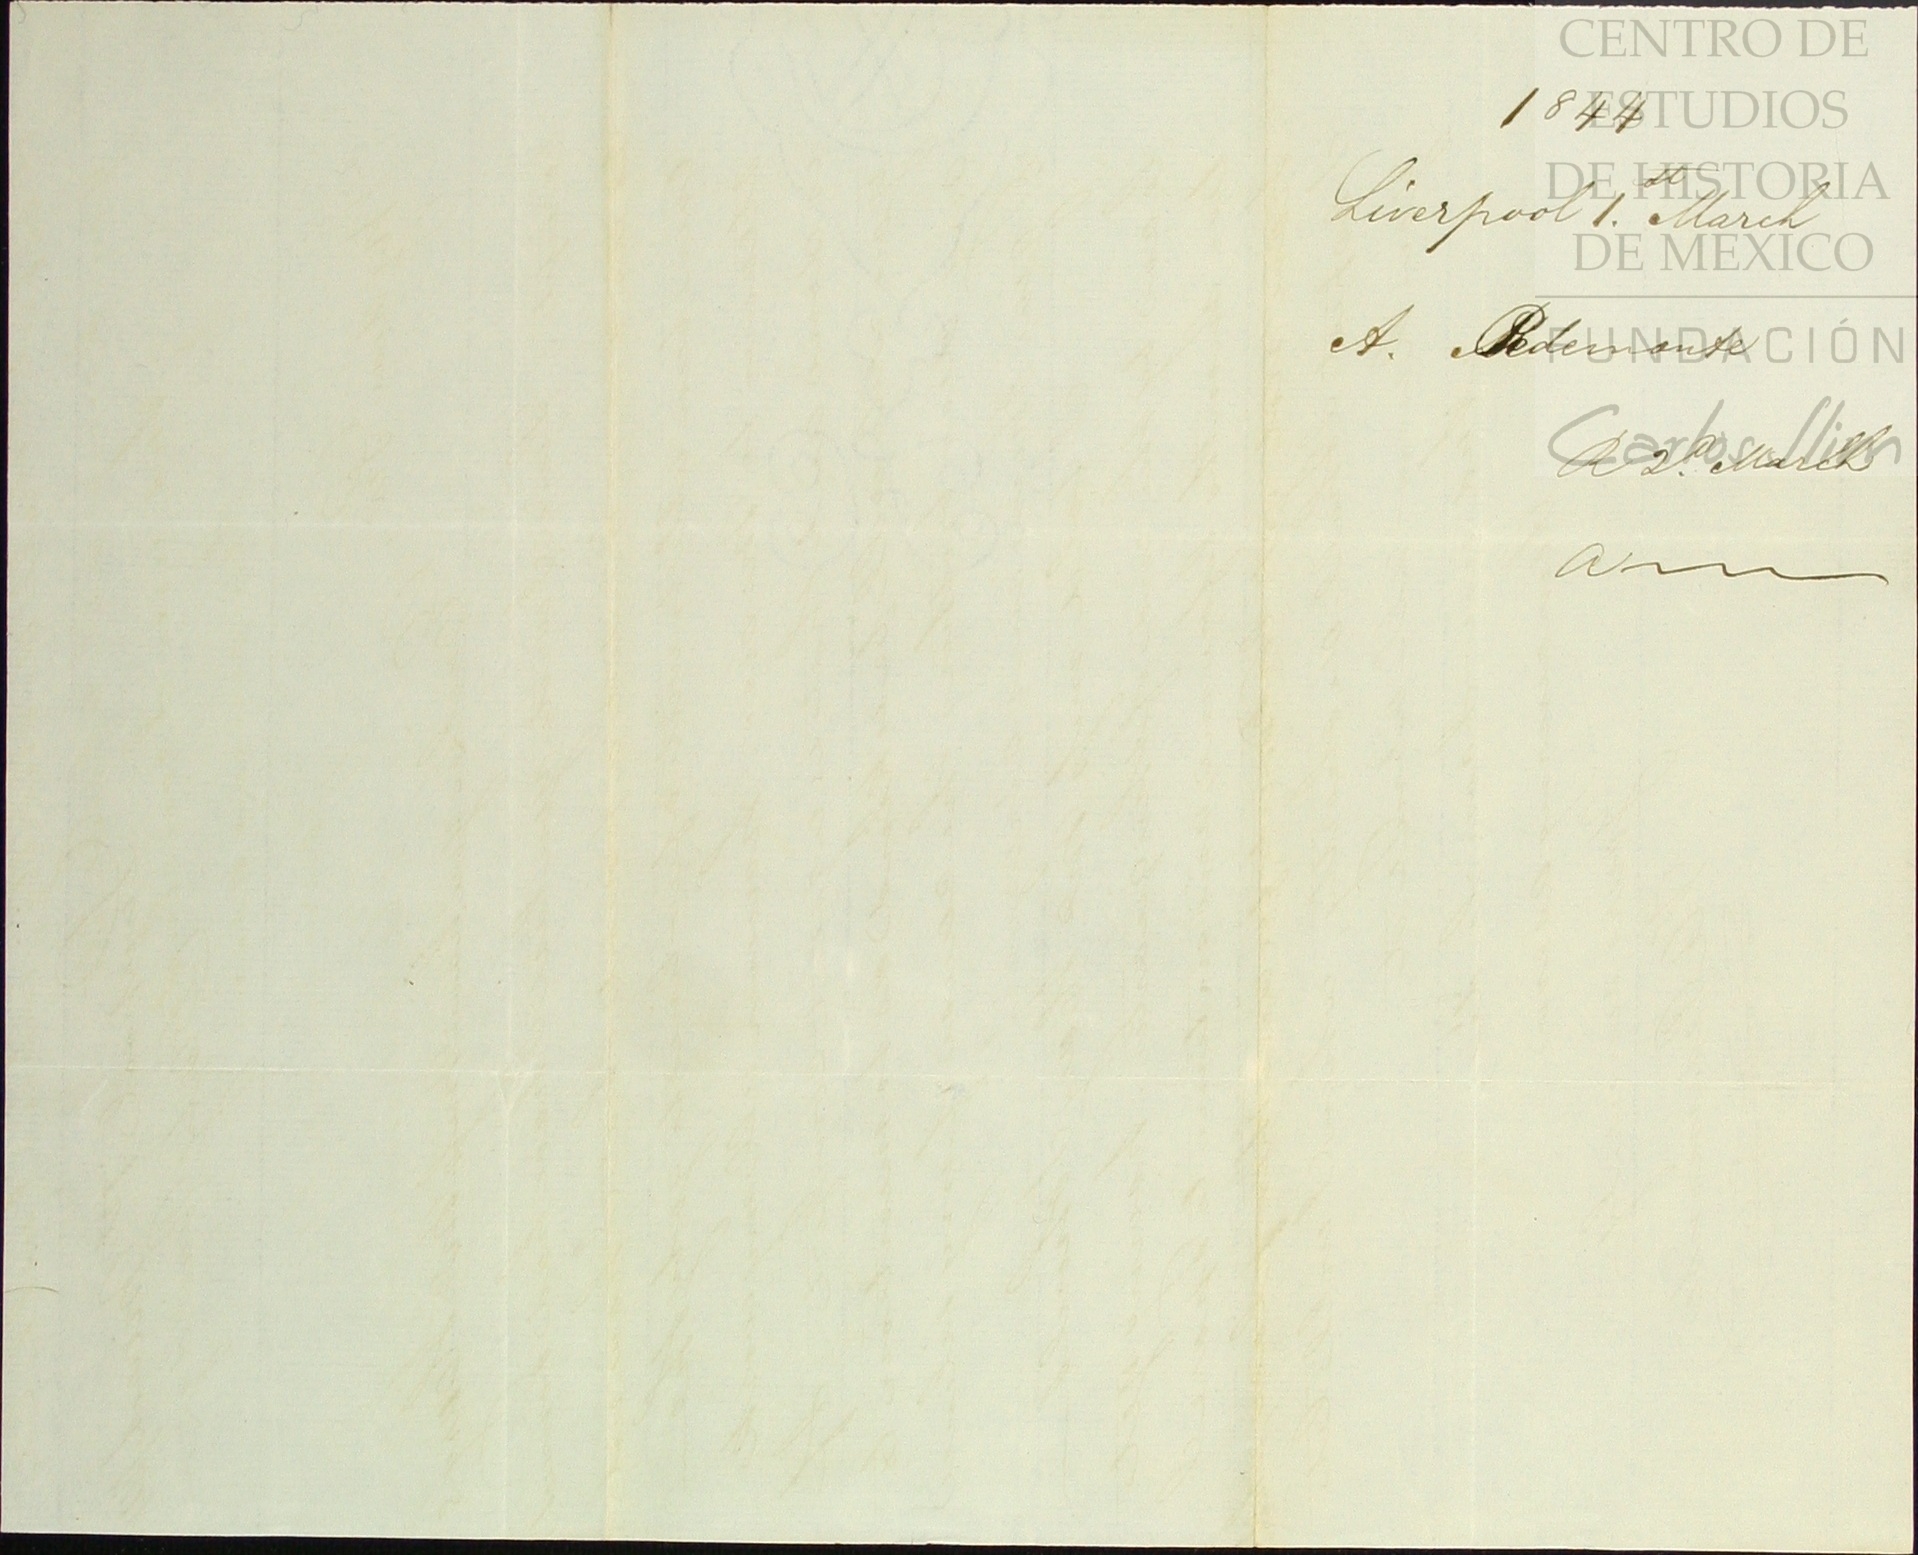 CENTRO DE
ESTUDIOS
DE HISTORIA
DE MEXICO
FUNDACIÓN
Carlos Slim
1844
Liverpool 1.st March
A. Pedemonte
R 2.d March
A